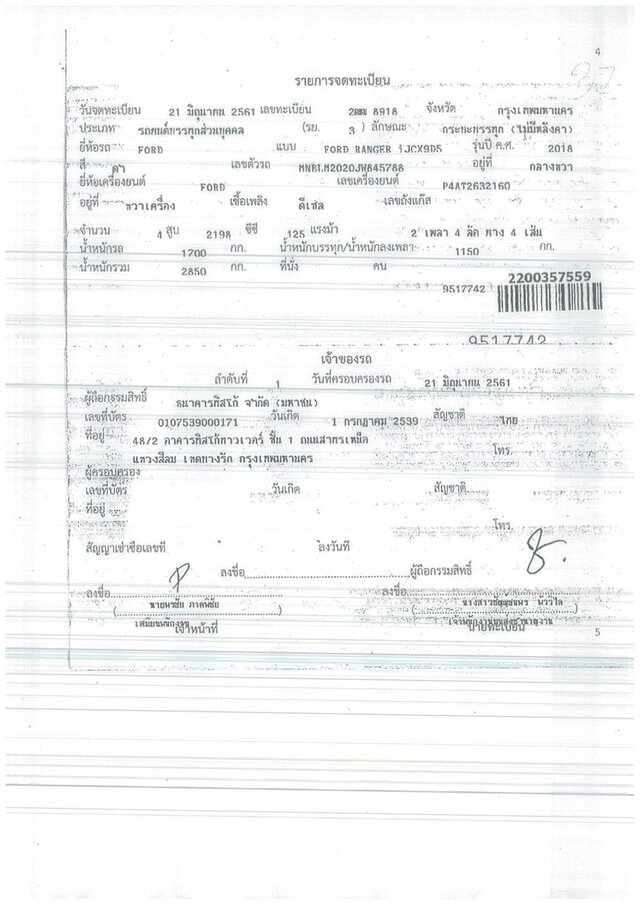 4
รายการจดทะเบียน
วันจดทะเบียน 21 มิถุนายน 2561 เลขทะเบียน 2ฒฒ 8918 จังหวัด กรุงเทพมหานคร
ประเภท รถยนต์บรรทุกส่วนบุคคล (รย. 3 ) ลักษณะ กระบะบรรทุก (ไม่มีหลังคา)
ยี่ห้อรถ FORD แบบ FORD RANGER 1JCX9D5 รุ่นปี ค.ศ. 2018
สี ดำ เลขตัวรถ MNBLM2020JW845788 อยู่ที่ กลางขวา
ยี่ห้อเครื่องยนต์ FORD เลขเครื่องยนต์ P4AT2632160
อยู่ที่ ขวาเครื่อง เชื้อเพลิง ดีเซล เลขถังแก๊ส
จำนวน 4 สูบ 2198 ซีซี 125 แรงม้า 2 เพลา 4 ล้อ ยาง 4 เส้น
น้ำหนักรถ 1700 กก. น้ำหนักบรรทุก/น้ำหนักลงเพลา 1150 กก.
น้ำหนักรวม 2850 กก. ที่นั่ง คน
2200357559
9517742
9517742
เจ้าของรถ
ลำดับที่ 1 วันที่ครอบครองรถ 21 มิถุนายน 2561
ผู้ถือกรรมสิทธิ์ ธนาคารทิสโก้ จำกัด (มหาชน)
เลขที่บัตร 0107539000171 วันเกิด 1 กรกฎาคม 2539 สัญชาติ ไทย
ที่อยู่ 48/2 อาคารทิสโก้ทาวเวอร์ ชั้น 1 ถนนสาทรเหนือ
โทร.
แขวงสีลม เขตบางรัก กรุงเทพมหานคร
ผู้ครอบครอง
เลขที่บัตร วันเกิด สัญชาติ
ที่อยู่
โทร.
สัญญาเช่าซื้อเลขที่ ลงวันที่
ลงชื่อ ผู้ถือกรรมสิทธิ์
ลงชื่อ ลงชื่อ
เจ้าหน้าที่ นายทะเบียน
5